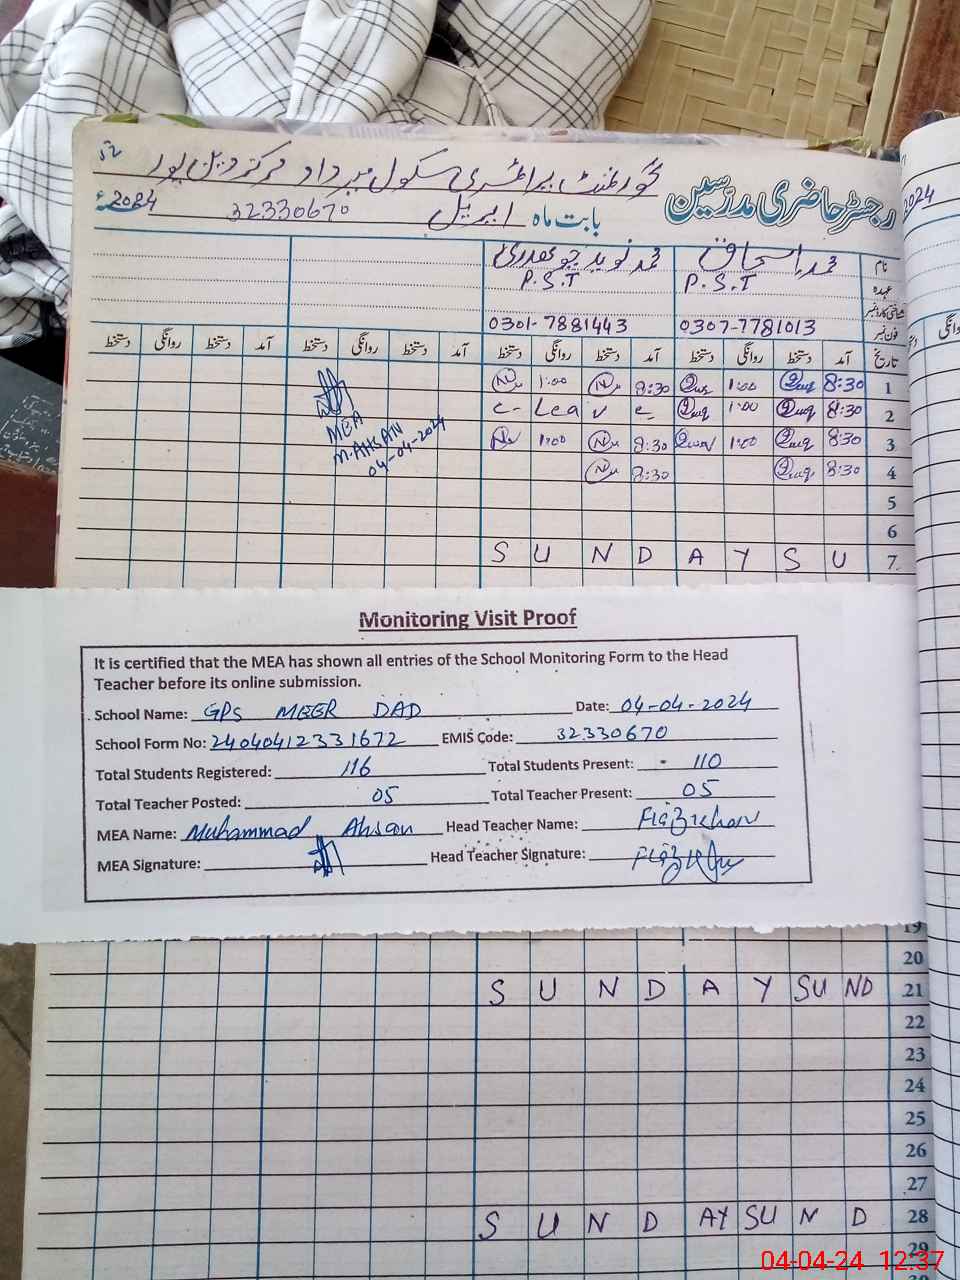 رجسٹر حاضری مدرسین
گورنمنٹ پرائمری سکول میر داد مرکز دین پور
بابت ماہ اپریل 32330670 2024ء
2024
نام محمد اسحاق محمد نوید چوہدری
عہدہ P.S.T P.S.T
شناختی کارڈ نمبر
فون نمبر 0307-7781013 0301-7881443
تاریخ آمد دستخط روانگی دستخط آمد دستخط روانگی دستخط آمد دستخط روانگی دستخط آمد دستخط روانگی دستخط
1 8:30 1:00 8:30 1:00
2 8:30 1:00 Leave
3 8:30 1:00 8:30 1:00
4 8:30 8:30
MEA
M. AHSAN
04-04-2024
5
6
S U N D A Y S U 7
Monitoring Visit Proof
It is certified that the MEA has shown all entries of the School Monitoring Form to the Head
Teacher before its online submission.
School Name: GPS MEER DAD Date: 04-04-2024
School Form No: 24040412331672 EMIS Code: 32330670
Total Students Registered: 116 Total Students Present: 110
Total Teacher Posted: 05 Total Teacher Present: 05
MEA Name: Muhammad Ahsan Head Teacher Name:
MEA Signature: Head Teacher Signature:
19
20
S U N D A Y SU ND 21
22
23
24
25
26
27
S U N D AY SU N D 28
29
04-04-24 12:37